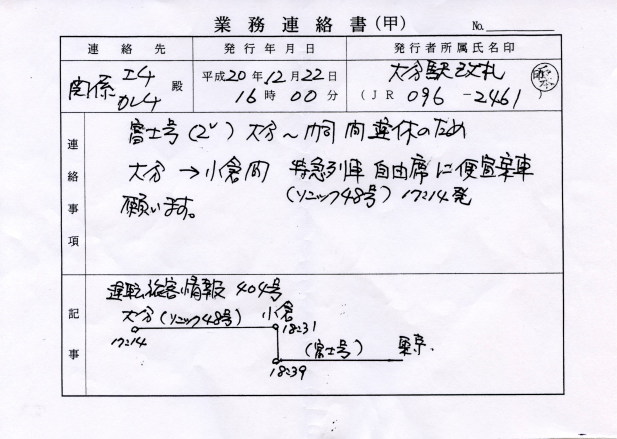 業務連絡書(甲) No.
連絡先 発行年月日 発行者所属氏名印
関係 エ4 カレ4 殿 平成20年12月22日 16時00分 大分駅改札 (JR 096-2461)
連絡事項
富士号(2レ) 大分〜門司間運休のため
大分→小倉間 特急列車自由席に便宜乗車
(ソニック48号) 17:14発
願います。
記事
運転旅客情報 404号
大分 (ソニック48号) 小倉
17:14 18:31
(富士号) 東京.
18:39